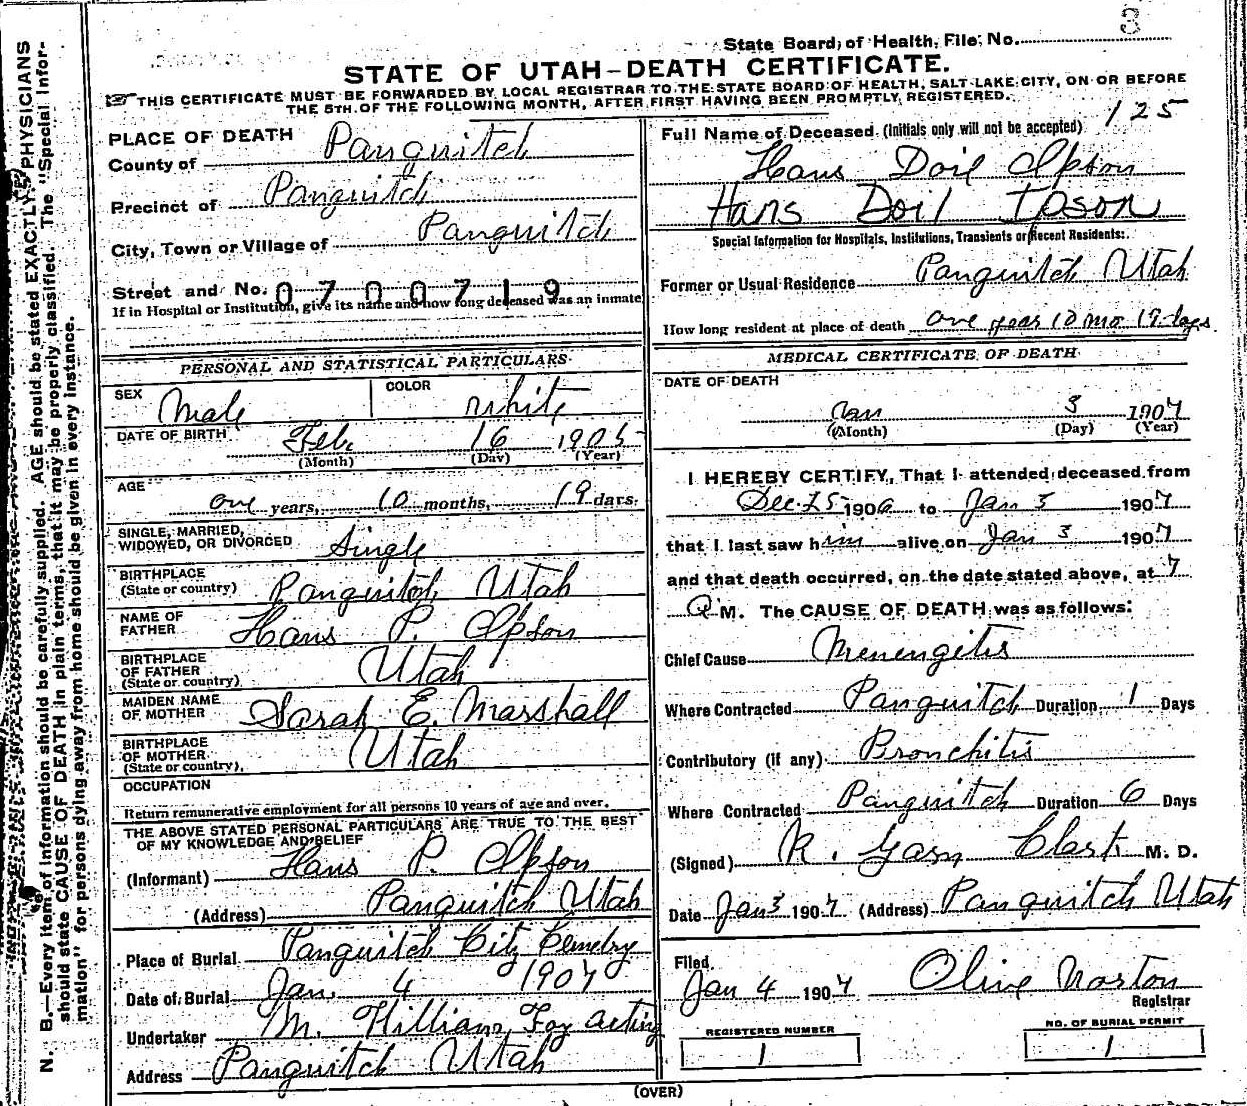 3
State Board of Health, File No.
STATE OF UTAH—DEATH CERTIFICATE.
THIS CERTIFICATE MUST BE FORWARDED BY LOCAL REGISTRAR TO THE STATE BOARD OF HEALTH, SALT LAKE CITY, ON OR BEFORE
THE 5TH OF THE FOLLOWING MONTH, AFTER FIRST HAVING BEEN PROMPTLY REGISTERED.
125
PLACE OF DEATH
County of Panguitch
Precinct of Panguitch
City, Town or Village of Panguitch
Street and No. 0700719
If in Hospital or Institution, give its name and how long deceased was an inmate
PERSONAL AND STATISTICAL PARTICULARS
SEX Male
COLOR White
DATE OF BIRTH Feb. 16 1905
(Month) (Day) (Year)
AGE
one years, 10 months, 19 days.
SINGLE, MARRIED,
WIDOWED, OR DIVORCED Single
BIRTHPLACE
(State or country) Panguitch Utah
NAME OF
FATHER Hans P. Ipson
BIRTHPLACE
OF FATHER
(State or country) Utah
MAIDEN NAME
OF MOTHER Sarah E. Marshall
BIRTHPLACE
OF MOTHER
(State or country) Utah
OCCUPATION
Return remunerative employment for all persons 10 years of age and over.
THE ABOVE STATED PERSONAL PARTICULARS ARE TRUE TO THE BEST
OF MY KNOWLEDGE AND BELIEF
(Informant) Hans P. Ipson
(Address) Panguitch Utah
Place of Burial Panguitch City Cemetry
Date of Burial Jan. 4 1907
Undertaker M. Foy acting
Address Panguitch Utah
Full Name of Deceased (Initials only will not be accepted)
Hans Doil Ipson
Hans Doil Ipson
Special Information for Hospitals, Institutions, Transients or Recent Residents:
Former or Usual Residence Panguitch Utah
How long resident at place of death one year 10 mo 19 days
MEDICAL CERTIFICATE OF DEATH
DATE OF DEATH
Jan 3 1907
(Month) (Day) (Year)
I HEREBY CERTIFY, That I attended deceased from
Dec. 25 1906 to Jan 3 1907
that I last saw him alive on Jan 3 1907
and that death occurred, on the date stated above, at 7
M. The CAUSE OF DEATH was as follows:
Chief Cause Menengitis
Where Contracted Panguitch Duration 1 Days
Contributory (if any) Bronchitis
Where Contracted Panguitch Duration 6 Days
(Signed) R. Garn Clark M. D.
Date Jan 3 1907 (Address) Panguitch Utah
Filed
Jan 4 1907 Olive Norton
Registrar
REGISTERED NUMBER
1
NO. OF BURIAL PERMIT
1
(OVER)
N. B.—Every item of information should be carefully supplied. AGE should be stated EXACTLY. PHYSICIANS
should state CAUSE OF DEATH in plain terms, that it may be properly classified. The "Special Infor-
mation" for persons dying away from home should be given in every instance.